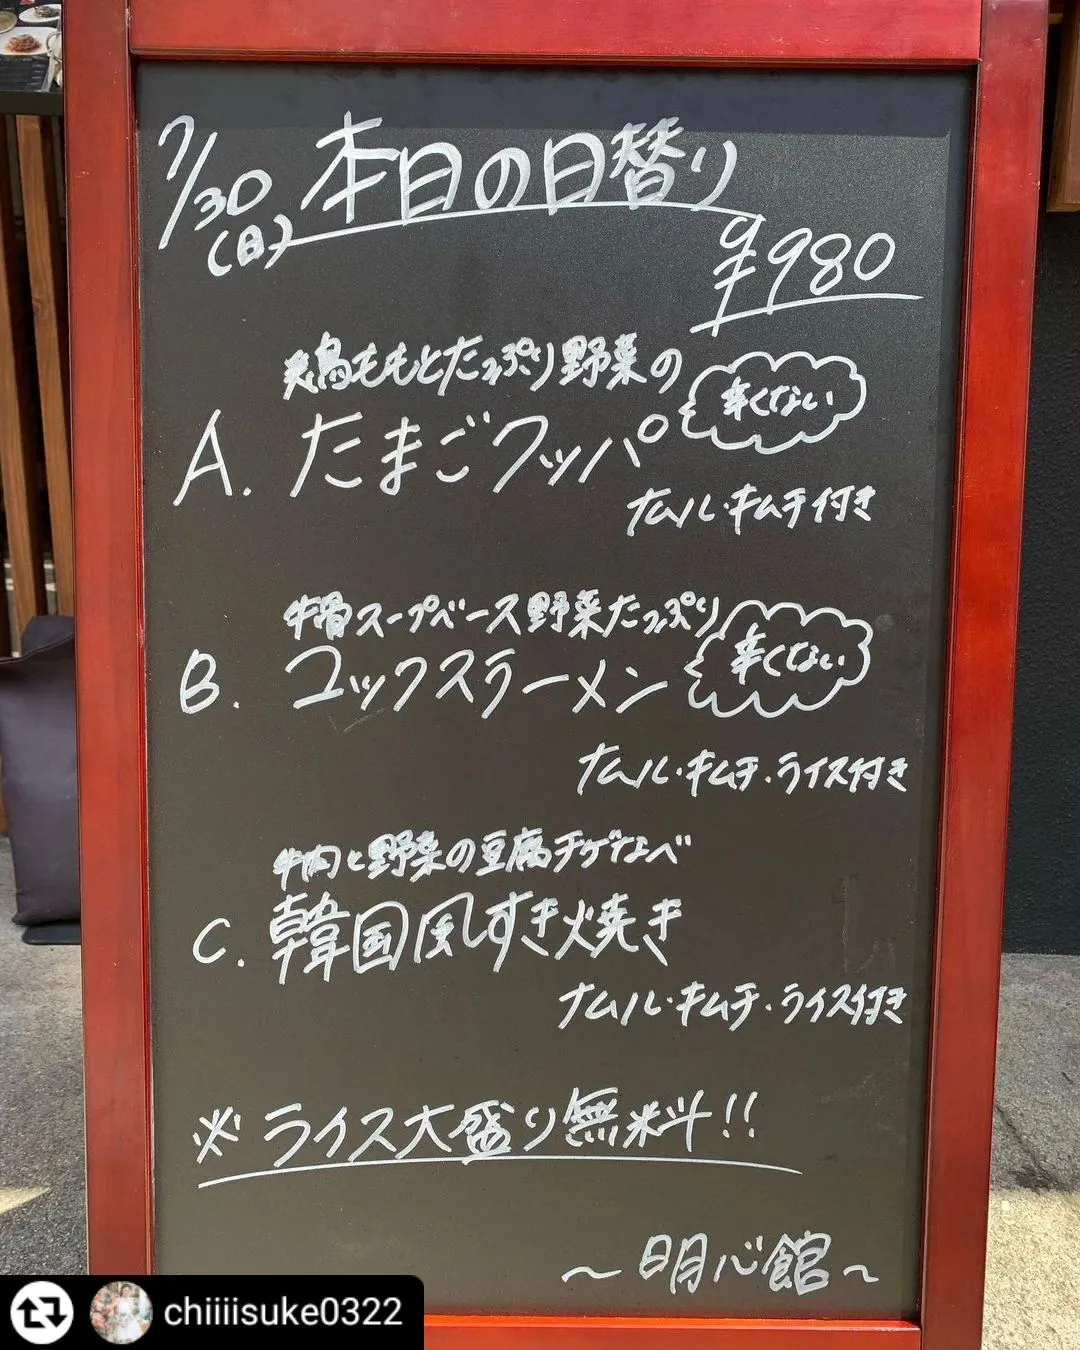 7/30(日) 本日の日替り
¥980
鶏ももとたっぷり野菜の
A. たまごクッパ
辛くない
ナムル・キムチ付き
牛骨スープベース野菜たっぷり
B. コックスラーメン
辛くない
ナムル・キムチ・ライス付き
牛肉と野菜の豆腐チゲなべ
C. 韓国風すき焼き
ナムル・キムチ・ライス付き
※ライス大盛り無料!!
〜明心館〜
chiiiisuke0322